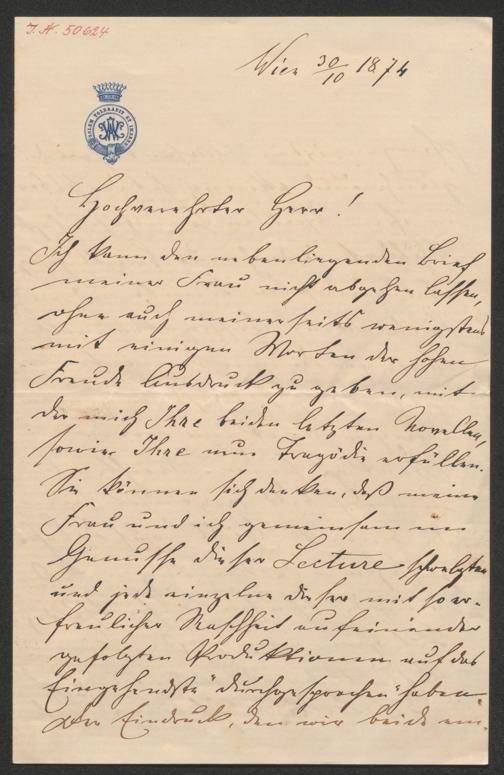 I. N. 50624
Wien 30/10 1874
Hochverehrter Herr!
Ich kann den nebenliegenden Brief
meiner Frau nicht abgehen lassen,
ohne auch meinerseits wenigstens
mit einigen Worten der hohen
Freude Ausdruck zu geben, mit
der mich Ihre beiden letzten Novellen,
sowie Ihre neue Tragödie erfüllen.
Sie können sich denken, daß meine
Frau und ich gemeinsam im
Genusse dieser Lecture schwelgten
und jede einzelne dieser mit so er-
freulicher Raschheit aufeinander
gefolgten Produktionen auf das
Eingehendste durchgesprochen haben
Der Eindruck, den wir beide em-